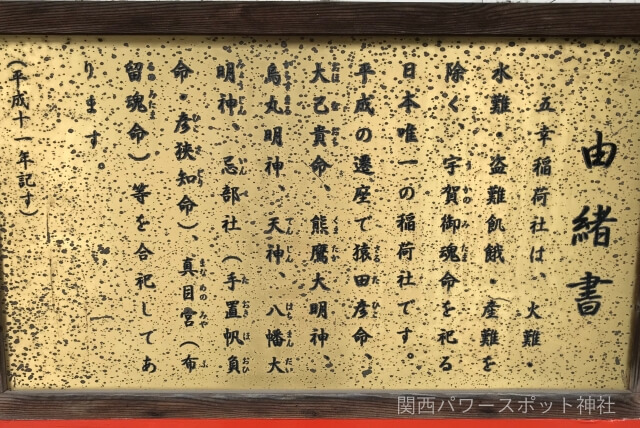 由緒書
五幸稲荷社は、火難・
水難・盗難飢餓・産難を
除く宇賀御魂命を祀る
日本唯一の稲荷社です。
平成の遷座で猿田彦命、
大己貴命、熊鷹大明神、
烏丸明神、天神、八幡大
明神、忌部社(手置帆負
命・彦狭知命)、真目宮(布
留魂命)等を合祀してあ
ります。
(平成十一年記す)
関西パワースポット神社